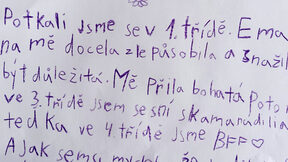 Potkali jsme se v 1. třídě. Ema
na mě docela zle působila a snažil
být důležitá. Mě Přila bohatá Poto
ve 3. třídě jsem se sní skamarádilia
teďka ve 4. třídě jsme BFF♡
A jak